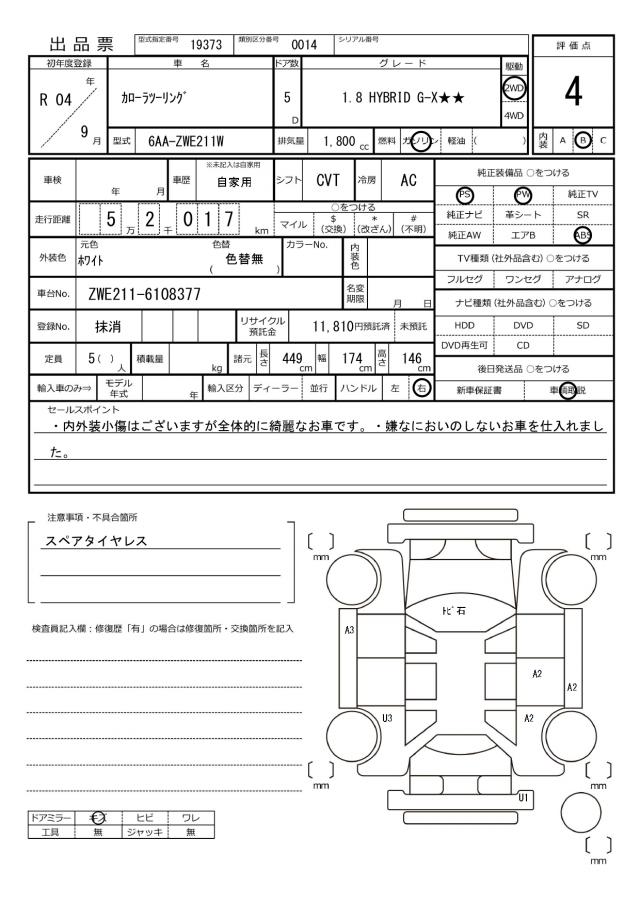 出品票 型式指定番号 19373 類別区分番号 0014 シリアル番号
評価点
4
初年度登録 車名 ドア数 グレード 駆動
R 04 年 9 月 カローラツーリング 5 D 1.8 HYBRID G-X★★ 2WD 4WD
型式 6AA-ZWE211W 排気量 1,800 cc 燃料 ガソリン 軽油 ( ) 内装 A B C
車検 年 月 車歴 ※未記入は自家用 自家用 シフト CVT 冷房 AC
走行距離 5 万 2 千 0 1 7 km ○をつける マイル $ (交換) * (改ざん) # (不明)
外装色 元色 ホワイト 色替 ( 色替無 ) カラーNo. 内装色
車台No. ZWE211-6108377 名変期限 月 日
登録No. 抹消 リサイクル預託金 11,810円預託済 未預託
定員 5 ( ) 人 積載量 kg 諸元 長さ 449 cm 幅 174 cm 高さ 146 cm
輸入車のみ⇒ モデル年式 年 輸入区分 ディーラー 並行 ハンドル 左 右
純正装備品 ○をつける
PS PW 純正TV
純正ナビ 革シート SR
純正AW エアB ABS
TV種類 (社外品含む) ○をつける
フルセグ ワンセグ アナログ
ナビ種類 (社外品含む) ○をつける
HDD DVD SD
DVD再生可 CD
後日発送品 ○をつける
新車保証書 車輌取説
セールスポイント
・内外装小傷はございますが全体的に綺麗なお車です。・嫌なにおいのしないお車を仕入れまし
た。
注意事項・不具合箇所
スペアタイヤレス
検査員記入欄：修復歴「有」の場合は修復箇所・交換箇所を記入
ドアミラー キズ ヒビ ワレ
工具 無 ジャッキ 無
〔 〕 mm
〔 〕 mm
トビ石
A3
A2
A2
U3
A2
〔 〕 mm
〔 〕 mm
U1
〔 〕 mm